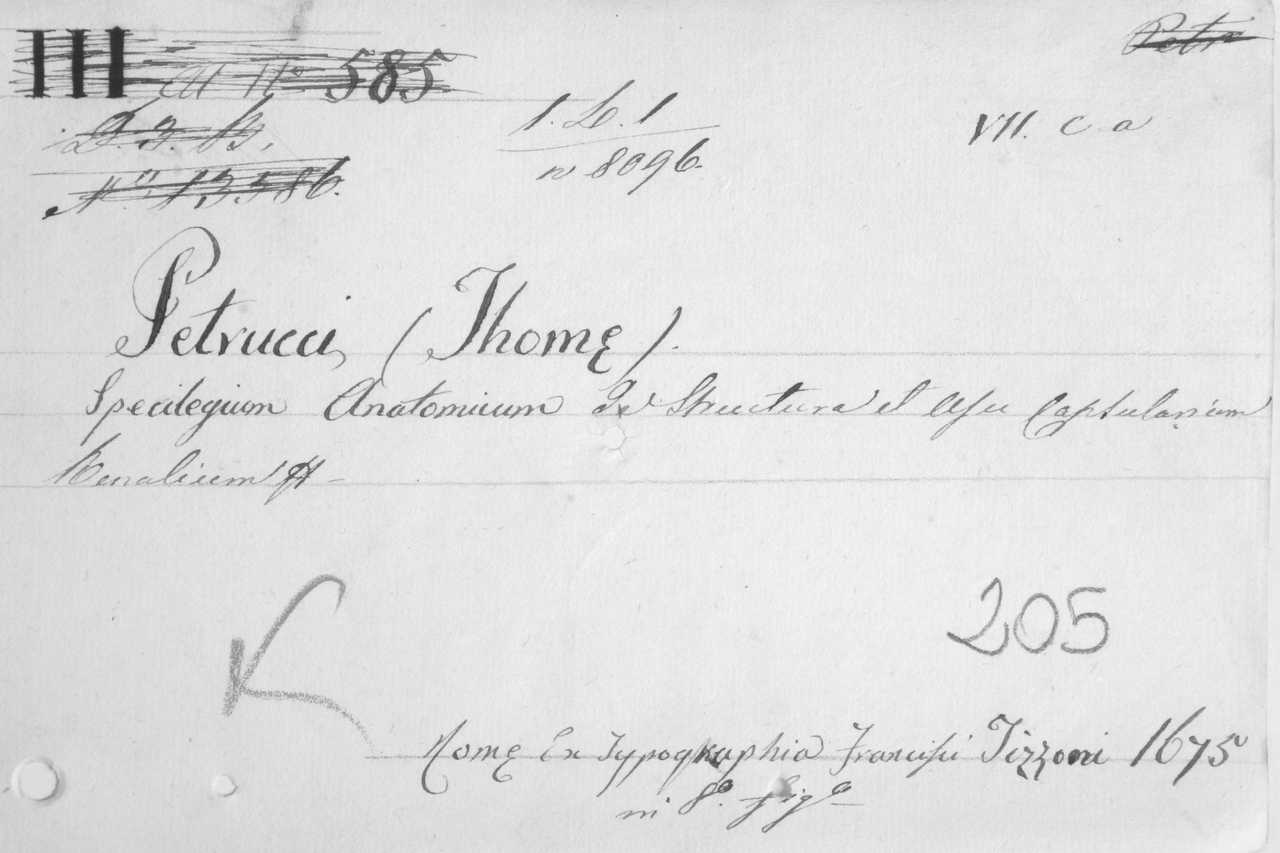 III 585 Petr
1. L. 1 VII. c a
n 8096.
N.º 13586.
Petrucci, (Thomę).
Specilegium Anatomicum De Structura et Usu Capsularum
Renalium
K
205
Romę Ex Typographia Francisci Tizzoni 1675
in 8º. figº